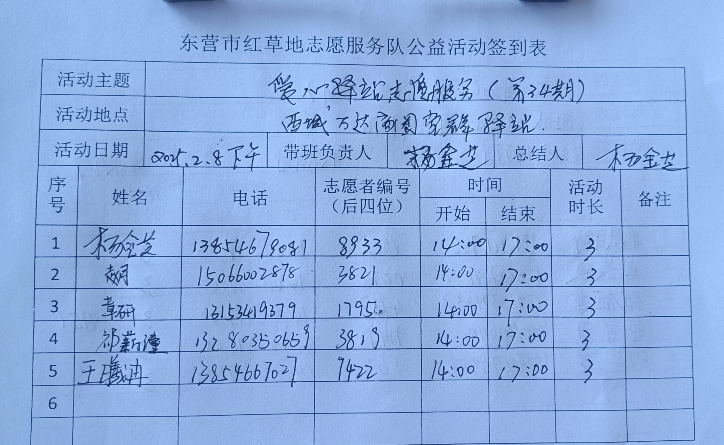 东营市红草地志愿服务队公益活动签到表
活动主题 爱心驿站志愿服务(第34期)
活动地点 西城万达商圈宝群驿站
活动日期 2025.2.8下午 带班负责人 杨金芝 总结人 杨金芝
序号 姓名 电话 志愿者编号(后四位) 时间 开始 结束 活动时长 备注
1 杨金芝 13854679081 8933 14:00 17:00 3
2 15066002878 3821 14:00 17:00 3
3 章研 13153419379 1795 14:00 17:00 3
4 祁薪潼 13280350659 3819 14:00 17:00 3
5 王冉 13854667027 9422 14:00 17:00 3
6